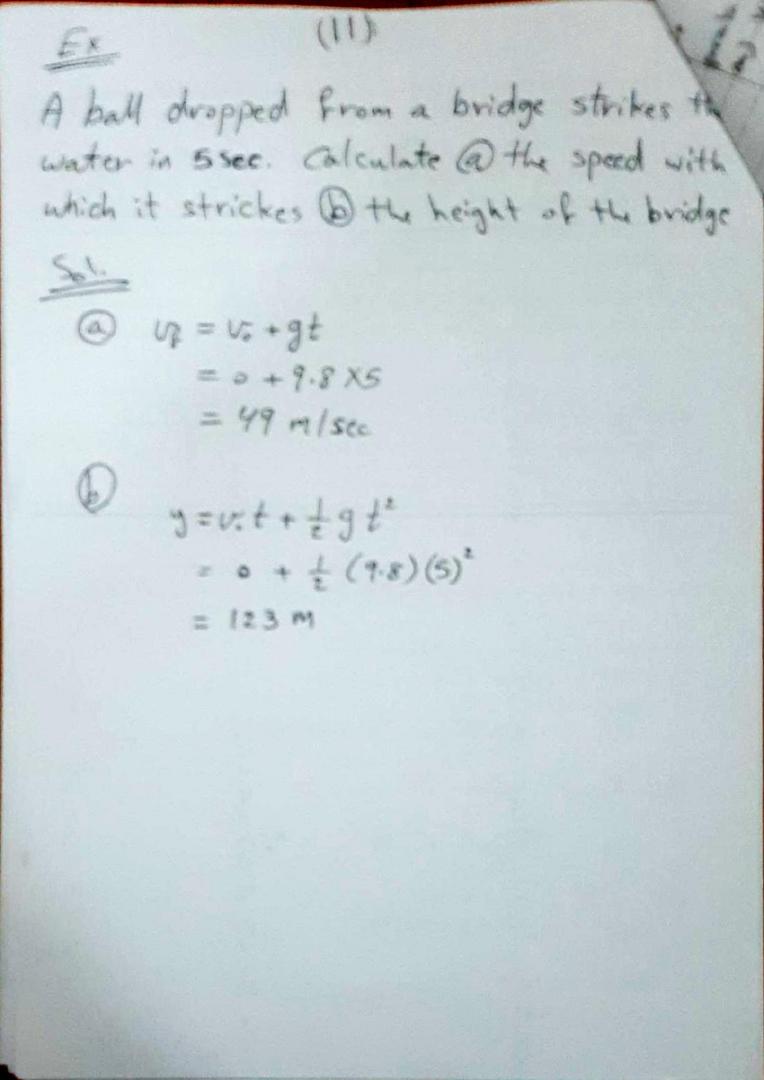 (11)
Ex
A ball dropped from a bridge strikes
water in 5 sec. Calculate ⓐ the speed with
which it strickes ⓑ the height of the bridge
Sol.
ⓐ vf = v₀ + gt
= 0 + 9.8 x5
= 49 m/sec
ⓑ
y = v₀t + 1/2 g t²
= 0 + 1/2 (9.8)(5)²
= 123 m